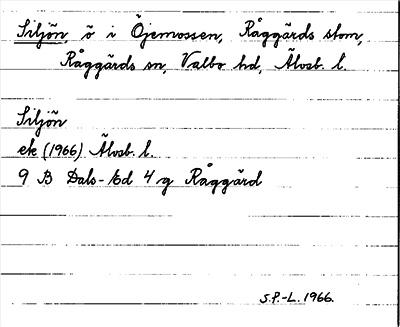 Siljön, ö i Öjemossen, Råggärds stom,
Råggärds sn, Valbo hd, Älvsb. l.
Siljön
ek (1966) Älvsb. l.
9 B Dals-Ed 4 g Råggärd
S.P.-L. 1966.